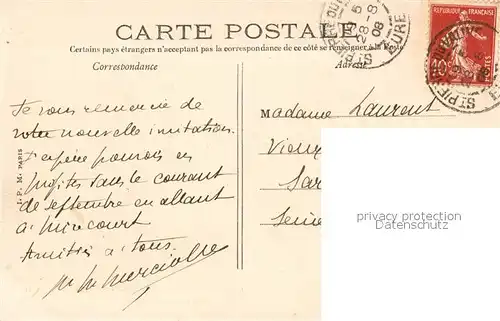 CARTE POSTALE
Certains pays étrangers n'acceptant pas la correspondance de ce côté se renseigner à la Poste
Correspondance
Adresse
Je vous remercie de
votre nouvelle invitation.
J'espère pouvoir en
profiter dans le courant
de septembre en allant
à Mirecourt
Amitiés à tous.
Madame Laurent
Vieux
Sar
Seine
J. P. M. PARIS
28-8
08
EURE
REPUBLIQUE FRANÇAISE
10
privacy protection
Datenschutz